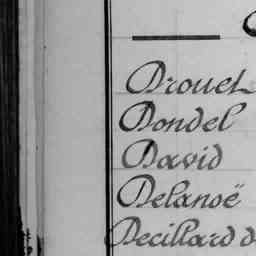 Drouet
Dondel
David
Delanoë
Decillard d